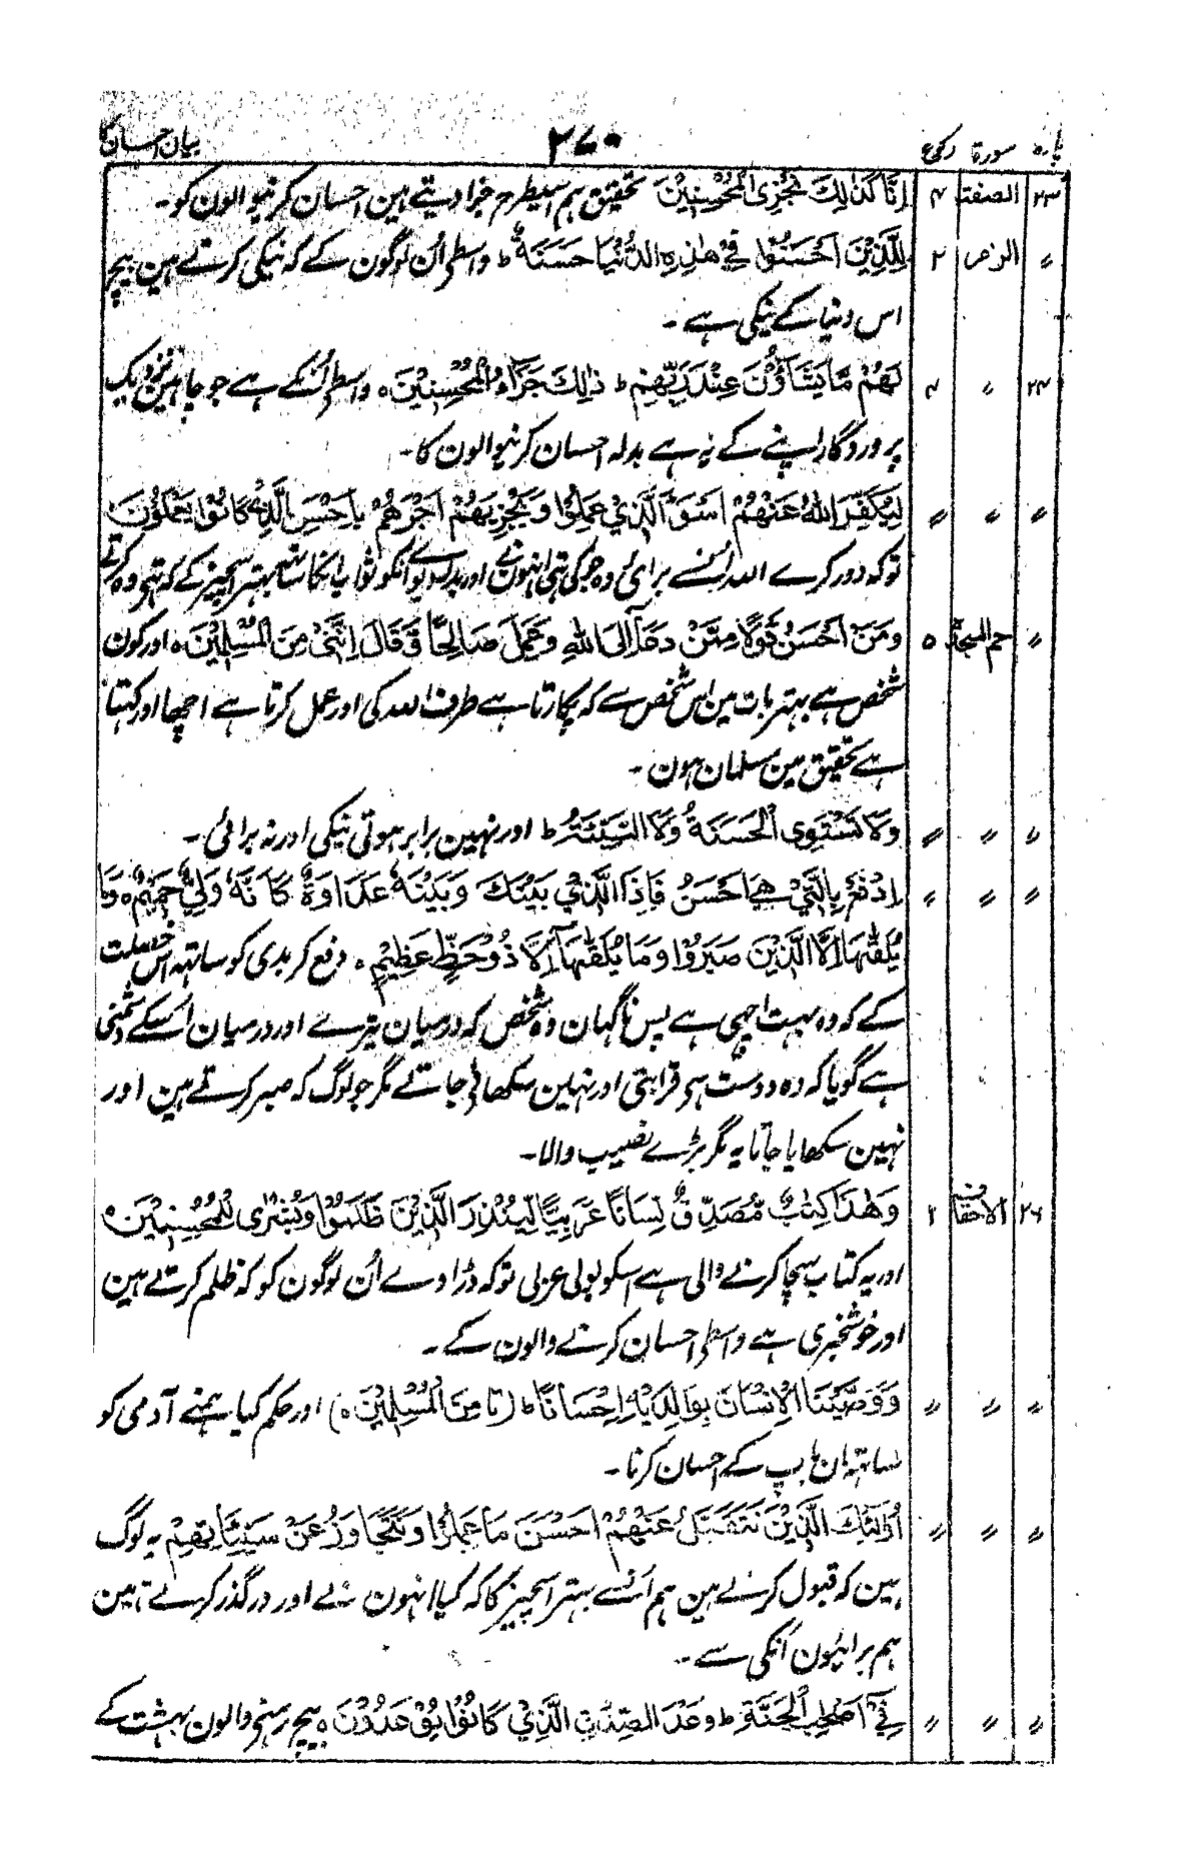 پارہ سورۃ رکوع ۲۷۰ بیان احسان کا
۲۳ الصفت ۴ اِنَّا كَذٰلِكَ نَجْزِى الْمُحْسِنِيْنَ تحقیق ہم اسیطرح جزا دیتے ہین احسان کرنیوالون کو۔
〃 الزمر ۲ لِلَّذِيْنَ اَحْسَنُوْا فِيْ هٰذِهِ الدُّنْيَا حَسَنَةٌ ط واسطے اُن لوگون کے کہ نیکی کرتے ہین بیچ
اس دنیا کے نیکی ہے۔
۲۴ 〃 ۴ لَهُمْ مَّا يَشَآؤُنَ عِنْدَ رَبِّهِمْ ط ذٰلِكَ جَزَآءُ الْمُحْسِنِيْنَ ہ واسطے اُنکے ہے جو چاہین نزدیک
پروردگار اپنے کے یہ ہے بدلہ احسان کرنیوالون کا۔
〃 〃 〃 لِيُكَفِّرَ اللهُ عَنْهُمْ اَسْوَءَ الَّذِيْ عَمِلُوْا وَيَجْزِيَهُمْ اَجْرَهُمْ بِاَحْسَنِ الَّذِيْ كَانُوْا يَعْمَلُوْنَ
توکہ دور کرے اللہ اُنسے برائی وہ جو کی تہی انہون نے اور بدلہ دیوے انکو ثواب انکا ساتھ بہتر اسچیز کے کہ تہے وہ کرتے
〃 حم السجدۃ ۵ وَمَنْ اَحْسَنُ قَوْلًا مِّمَّنْ دَعَآ اِلَى اللهِ وَعَمِلَ صَالِحًا وَّقَالَ اِنَّنِيْ مِنَ الْمُسْلِمِيْنَ ہ اور کون
شخص ہے بہتر بات مین اس شخص سے کہ پکارتا ہے طرف اللہ کی اور عمل کرتا ہے اچھا اور کہتا
ہے تحقیق مین مسلمان ہون۔
〃 〃 〃 وَلَا تَسْتَوِى الْحَسَنَةُ وَلَا السَّيِّئَةُ ط اور نہین برابر ہوتی نیکی اور نہ برائی۔
〃 〃 〃 اِدْفَعْ بِالَّتِيْ هِيَ اَحْسَنُ فَاِذَا الَّذِيْ بَيْنَكَ وَبَيْنَهٗ عَدَاوَةٌ كَاَنَّهٗ وَلِيٌّ حَمِيْمٌ ہ وَمَا
يُلَقّٰهَا اِلَّا الَّذِيْنَ صَبَرُوْا وَمَا يُلَقّٰهَآ اِلَّا ذُوْ حَظٍّ عَظِيْمٍ ہ دفع کر بدی کو ساتھ اس خصلت
کے کہ وہ بہت اچہی ہے پس ناگہان وہ شخص کہ درمیان تیرے اور درمیان اُسکے دشمنی
ہے گویا کہ وہ دوست ہی قرابتی اور نہین سکھائی جاتے مگر جو لوگ کہ صبر کرتے ہین اور
نہین سکھایا جاتا یہ مگر بڑے نصیب والا۔
۲۶ الاحقاف ۲ وَهٰذَا كِتٰبٌ مُّصَدِّقٌ لِّسَانًا عَرَبِيًّا لِّيُنْذِرَ الَّذِيْنَ ظَلَمُوْا وَبُشْرٰى لِلْمُحْسِنِيْنَ ہ
اور یہ کتاب سچا کرنے والی ہے اسکو بولی عربی توکہ ڈراوے اُن لوگون کو کہ ظلم کرتے ہین
اور خوشخبری ہے واسطے احسان کرنے والون کے۔
〃 〃 〃 وَوَصَّيْنَا الْاِنْسَانَ بِوَالِدَيْهِ اِحْسَانًا ط (تا مِنَ الْمُسْلِمِيْنَ ہ) اور حکم کیا ہمنے آدمی کو
ساتھ ان باپ کے احسان کرنا۔
〃 〃 〃 اُولٰٓئِكَ الَّذِيْنَ نَتَقَبَّلُ عَنْهُمْ اَحْسَنَ مَا عَمِلُوْا وَنَتَجَاوَزُ عَنْ سَيِّئَاتِهِمْ یہ لوگ
ہین کہ قبول کرتے ہین ہم اُنسے بہتر اسچیز کا کہ کیا انہون نے اور درگذر کرتے ہین
ہم برائیون اُنکی سے۔
〃 〃 〃 فِيْٓ اَصْحٰبِ الْجَنَّةِ ط وَعْدَ الصِّدْقِ الَّذِيْ كَانُوْا يُوْعَدُوْنَ ہ بیچ رہنے والون بہشت کے